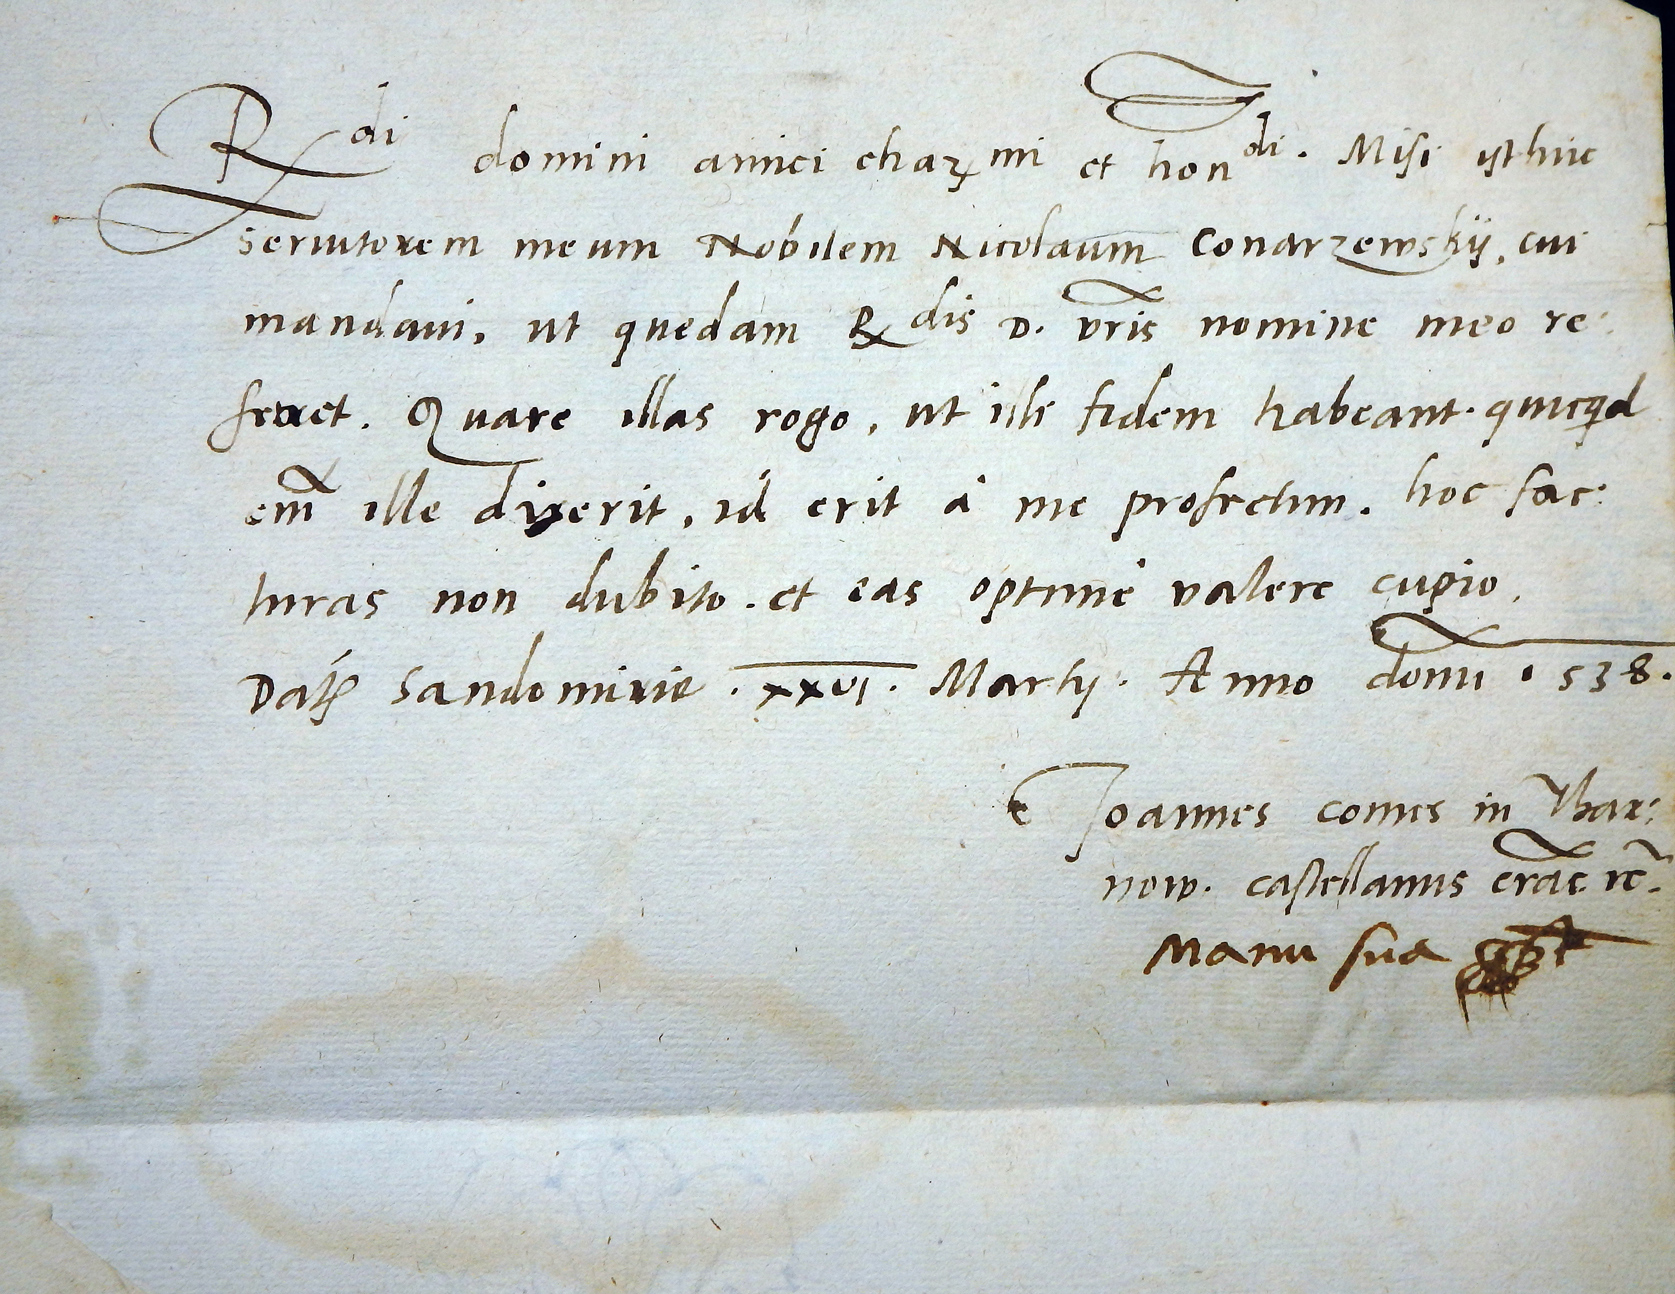 Rdi domini amici charmi et hondi. Misi isthuc
serviitorem meum Nobilem Nicolaum Conarzewskij, cui
mandaui, ut quedam Rdis D. vris nomine meo re:
ferret. Quare illas rogo, ut illi fidem habeant. quicqd
em ille dixerit, id erit à me profectum. hoc fac:
turas non dubito. et eas optimè valere cupio.
Dat Sandomirie .xxvi. Martij. Anno domi 1538.
Joannes comes in Thar:
now. castellanus crac. rc.
Manu sua sspt